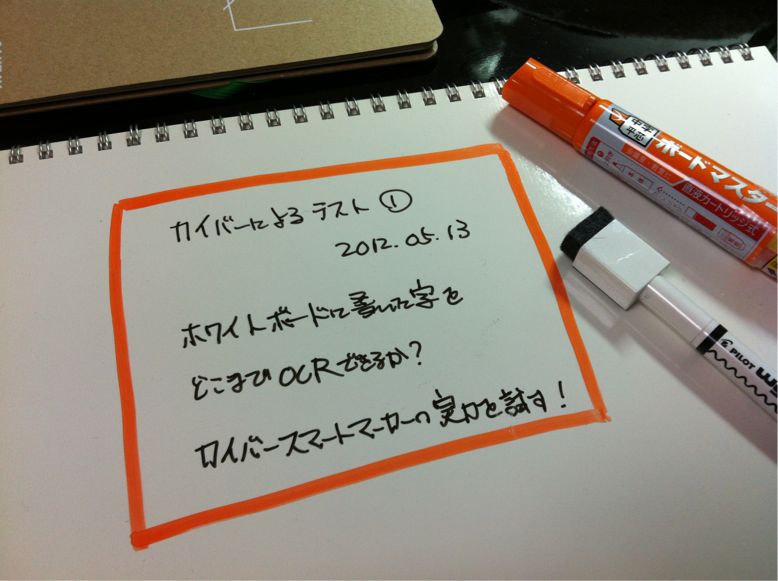 カイバーによるテスト①
2012.05.13
ホワイトボードに書いた字を
どこまでOCRできるか?
カイバースマートマーカーの実力を試す!
ボードマスター
中字
平芯
直液カートリッジ式
PILOT